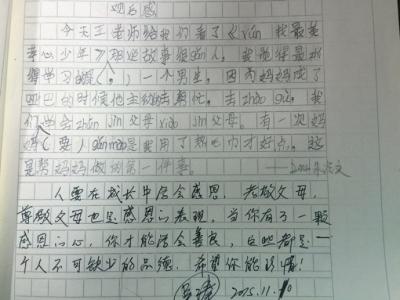 观后感
今天王老师给我们看了《xún 我最美
孝心少年》那些故事很gǎn人。我觉得最
得学习的是（ ）一个男生，因为妈妈成了
四巴的时候他主动去帮忙。去zhào gù。我
们学会zūn jìn父母xiào jìn父母。有一次妈
妈（ ）gǎn mào是我用了热巾才好点。这
是帮妈妈做的第一件事。
人要在成长中学会感恩，孝敬父母，
尊敬父母也是感恩的表现，当你有了一颗
感恩的心，你才能学会善良，这些都是一
个人不可缺少的品德，希望你能珍惜！
2015.11.10